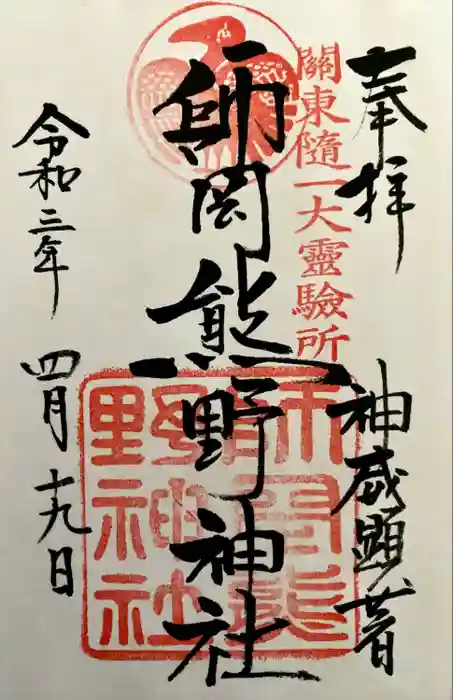 奉拝
神威顕著
關東隨一大靈驗所
師岡熊野神社
師岡熊
野神社
令和三年
四月十九日